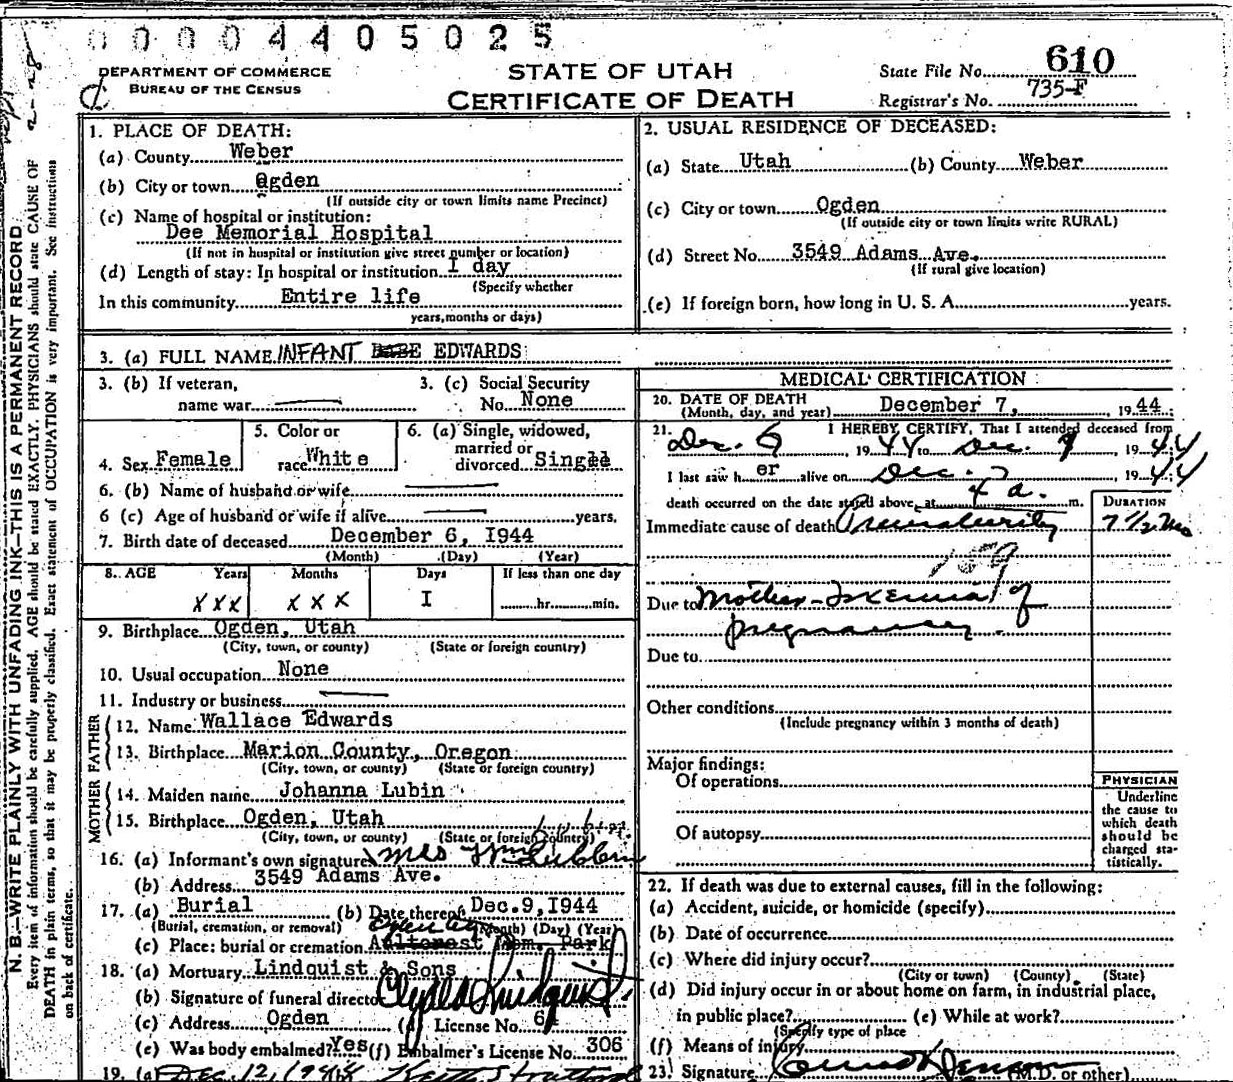 0000 4405025
DEPARTMENT OF COMMERCE
BUREAU OF THE CENSUS
STATE OF UTAH
CERTIFICATE OF DEATH
State File No. 610
Registrar's No. 735-F
N. B.—WRITE PLAINLY WITH UNFADING INK—THIS IS A PERMANENT RECORD
Every item of information should be carefully supplied. AGE should be stated EXACTLY. PHYSICIANS should state CAUSE OF
DEATH in plain terms, so that it may be properly classified. Exact statement of OCCUPATION is very important. See instructions
on back of certificate.
1. PLACE OF DEATH:
(a) County Weber
(b) City or town Ogden
(If outside city or town limits name Precinct)
(c) Name of hospital or institution:
Dee Memorial Hospital
(If not in hospital or institution give street number or location)
(d) Length of stay: In hospital or institution I day
(Specify whether
In this community Entire life
years, months or days)
2. USUAL RESIDENCE OF DECEASED:
(a) State Utah (b) County Weber
(c) City or town Ogden
(If outside city or town limits write RURAL)
(d) Street No. 3549 Adams Ave.
(If rural give location)
(e) If foreign born, how long in U. S. A. years.
3. (a) FULL NAME INFANT BABE EDWARDS
3. (b) If veteran,
name war
3. (c) Social Security
No. None
4. Sex Female
5. Color or
race White
6. (a) Single, widowed,
married or
divorced Single
6. (b) Name of husband or wife
6 (c) Age of husband or wife if alive years.
7. Birth date of deceased December 6, I944
(Month) (Day) (Year)
8. AGE Years Months Days If less than one day
XXX XXX I hr. min.
9. Birthplace Ogden, Utah
(City, town, or county) (State or foreign country)
10. Usual occupation None
11. Industry or business
FATHER
12. Name Wallace Edwards
13. Birthplace Marion County, Oregon
(City, town, or county) (State or foreign country)
MOTHER
14. Maiden name Johanna Lubin
15. Birthplace Ogden, Utah
(City, town, or county) (State or foreign country)
16. (a) Informant's own signature Mrs Wm Lubben
(b) Address 3549 Adams Ave.
17. (a) Burial (b) Date thereof Dec.9,I944
(Burial, cremation, or removal) (Month) (Day) (Year)
(c) Place: burial or cremation Aultorest Mem. Park
18. (a) Mortuary Lindquist & Sons
(b) Signature of funeral director Clyde Lindquist
(c) Address Ogden (d) License No. 64
(e) Was body embalmed? Yes (f) Embalmer's License No. 306
19. (a) Dec. 12, 1944
MEDICAL CERTIFICATION
20. DATE OF DEATH
(Month, day, and year) December 7, 1944
21. I HEREBY CERTIFY, That I attended deceased from
Dec. 6 1944 to Dec. 7 1944
I last saw her alive on Dec. 7 1944
death occurred on the date stated above, at 4 a. m.
DURATION
Immediate cause of death Prematurity 7 1/2 Mo
159
Due to Mother - Toxemia of
pregnancy.
Due to
Other conditions
(Include pregnancy within 3 months of death)
Major findings:
Of operations
Of autopsy
PHYSICIAN
Underline
the cause to
which death
should be
charged sta-
tistically.
22. If death was due to external causes, fill in the following:
(a) Accident, suicide, or homicide (specify)
(b) Date of occurrence
(c) Where did injury occur?
(City or town) (County) (State)
(d) Did injury occur in or about home on farm, in industrial place,
in public place? (e) While at work?
(Specify type of place
(f) Means of injury
23. Signature (M.D. or other)